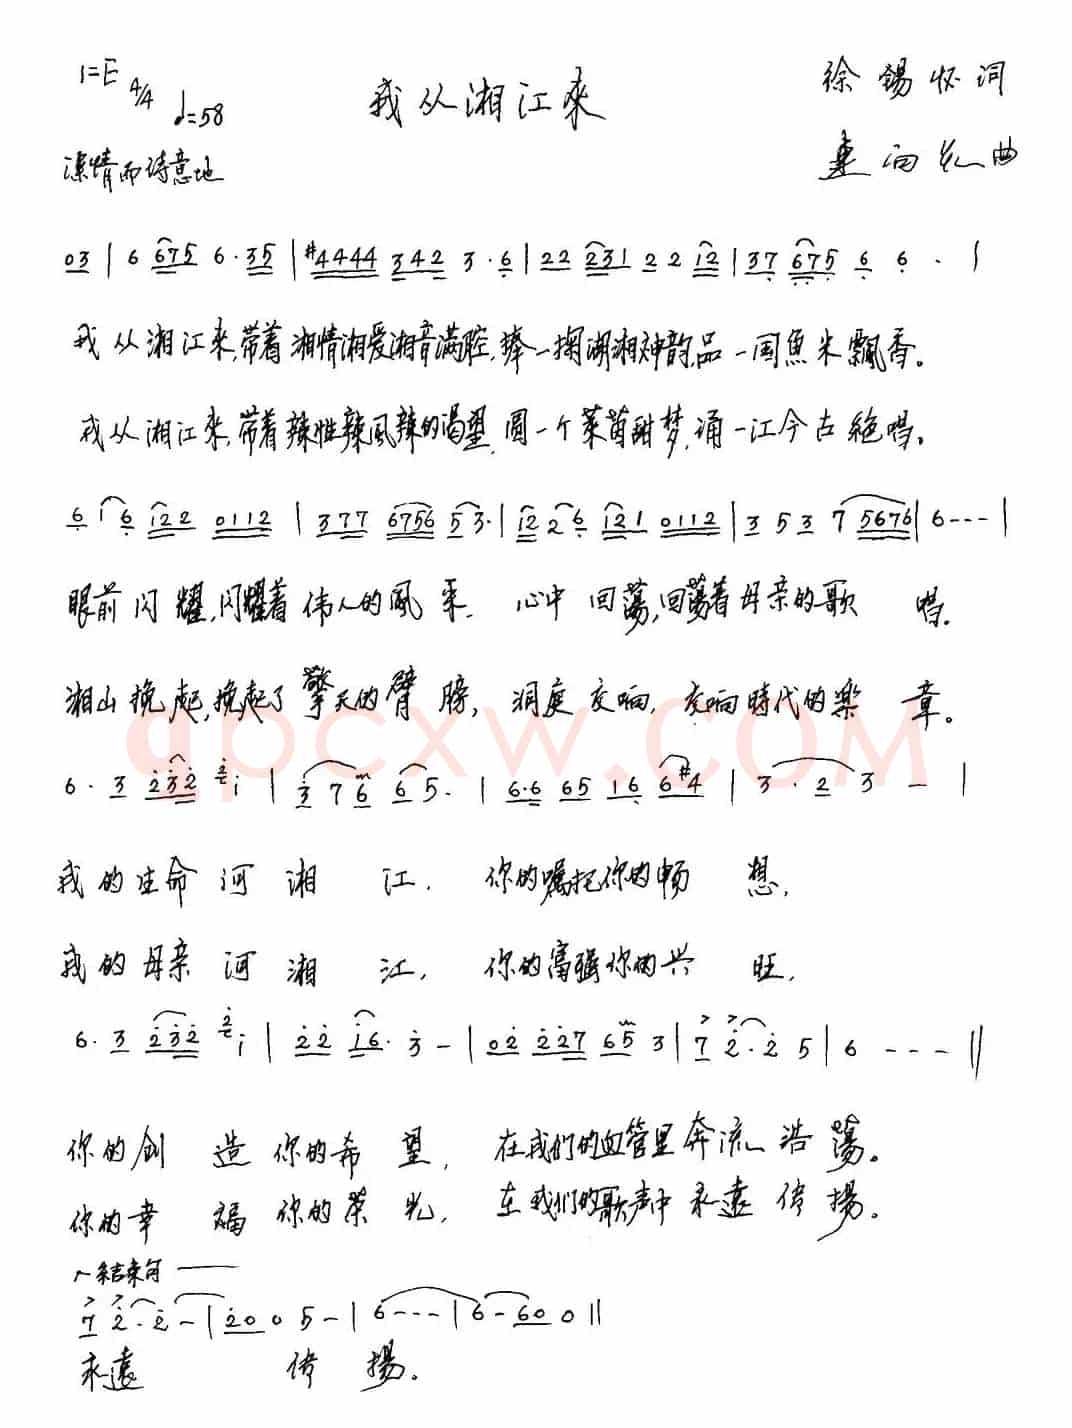 1=E 4/4 ♩=58
我从湘江來
徐錫怀词
曲
深情而诗意地
03 | 6 675 6·35 | #4444 342 3·6 | 22 231 22 12 | 37 675 6 6 · |
我从湘江來,带着湘情湘爱湘音满腔,捧一掬湖湘神韵,品一国魚米飄香。
我从湘江來,带着辣性辣風辣的渴望,圆一个莱茵甜梦,诵一江今古絕唱。
6 i 6 122 0112 | 377 6756 53· | 12 2 6 121 0112 | 3 5 3 7 5676 | 6 - - - |
眼前闪耀,闪耀着伟人的風采. 心中回蕩,回蕩着母亲的歌唱.
湘山挽起,挽起了擎天的臂膀, 洞庭交响, 交响時代的樂章。
qpcxw.com
6· 3 232 2 i | 3 7 6 6 5· | 6·6 65 16 6#4 | 3· 2 3 - |
我的生命河湘江. 你的嘱托你的畅想,
我的母亲河湘江, 你的富强你的兴旺,
6· 3 232 2 i | 22 i6· 3 - | 02 227 65 3 | 7 2· 2 5 | 6 - - - ||
你的创造你的希望, 在我们的血管里奔流浩蕩。
你的幸福你的荣光, 在我们的歌声中永遠传揚。
结束句
7 2· 2 - | 2 0 0 5 - | 6 - - - | 6 - 6 0 0 ||
永遠传揚。